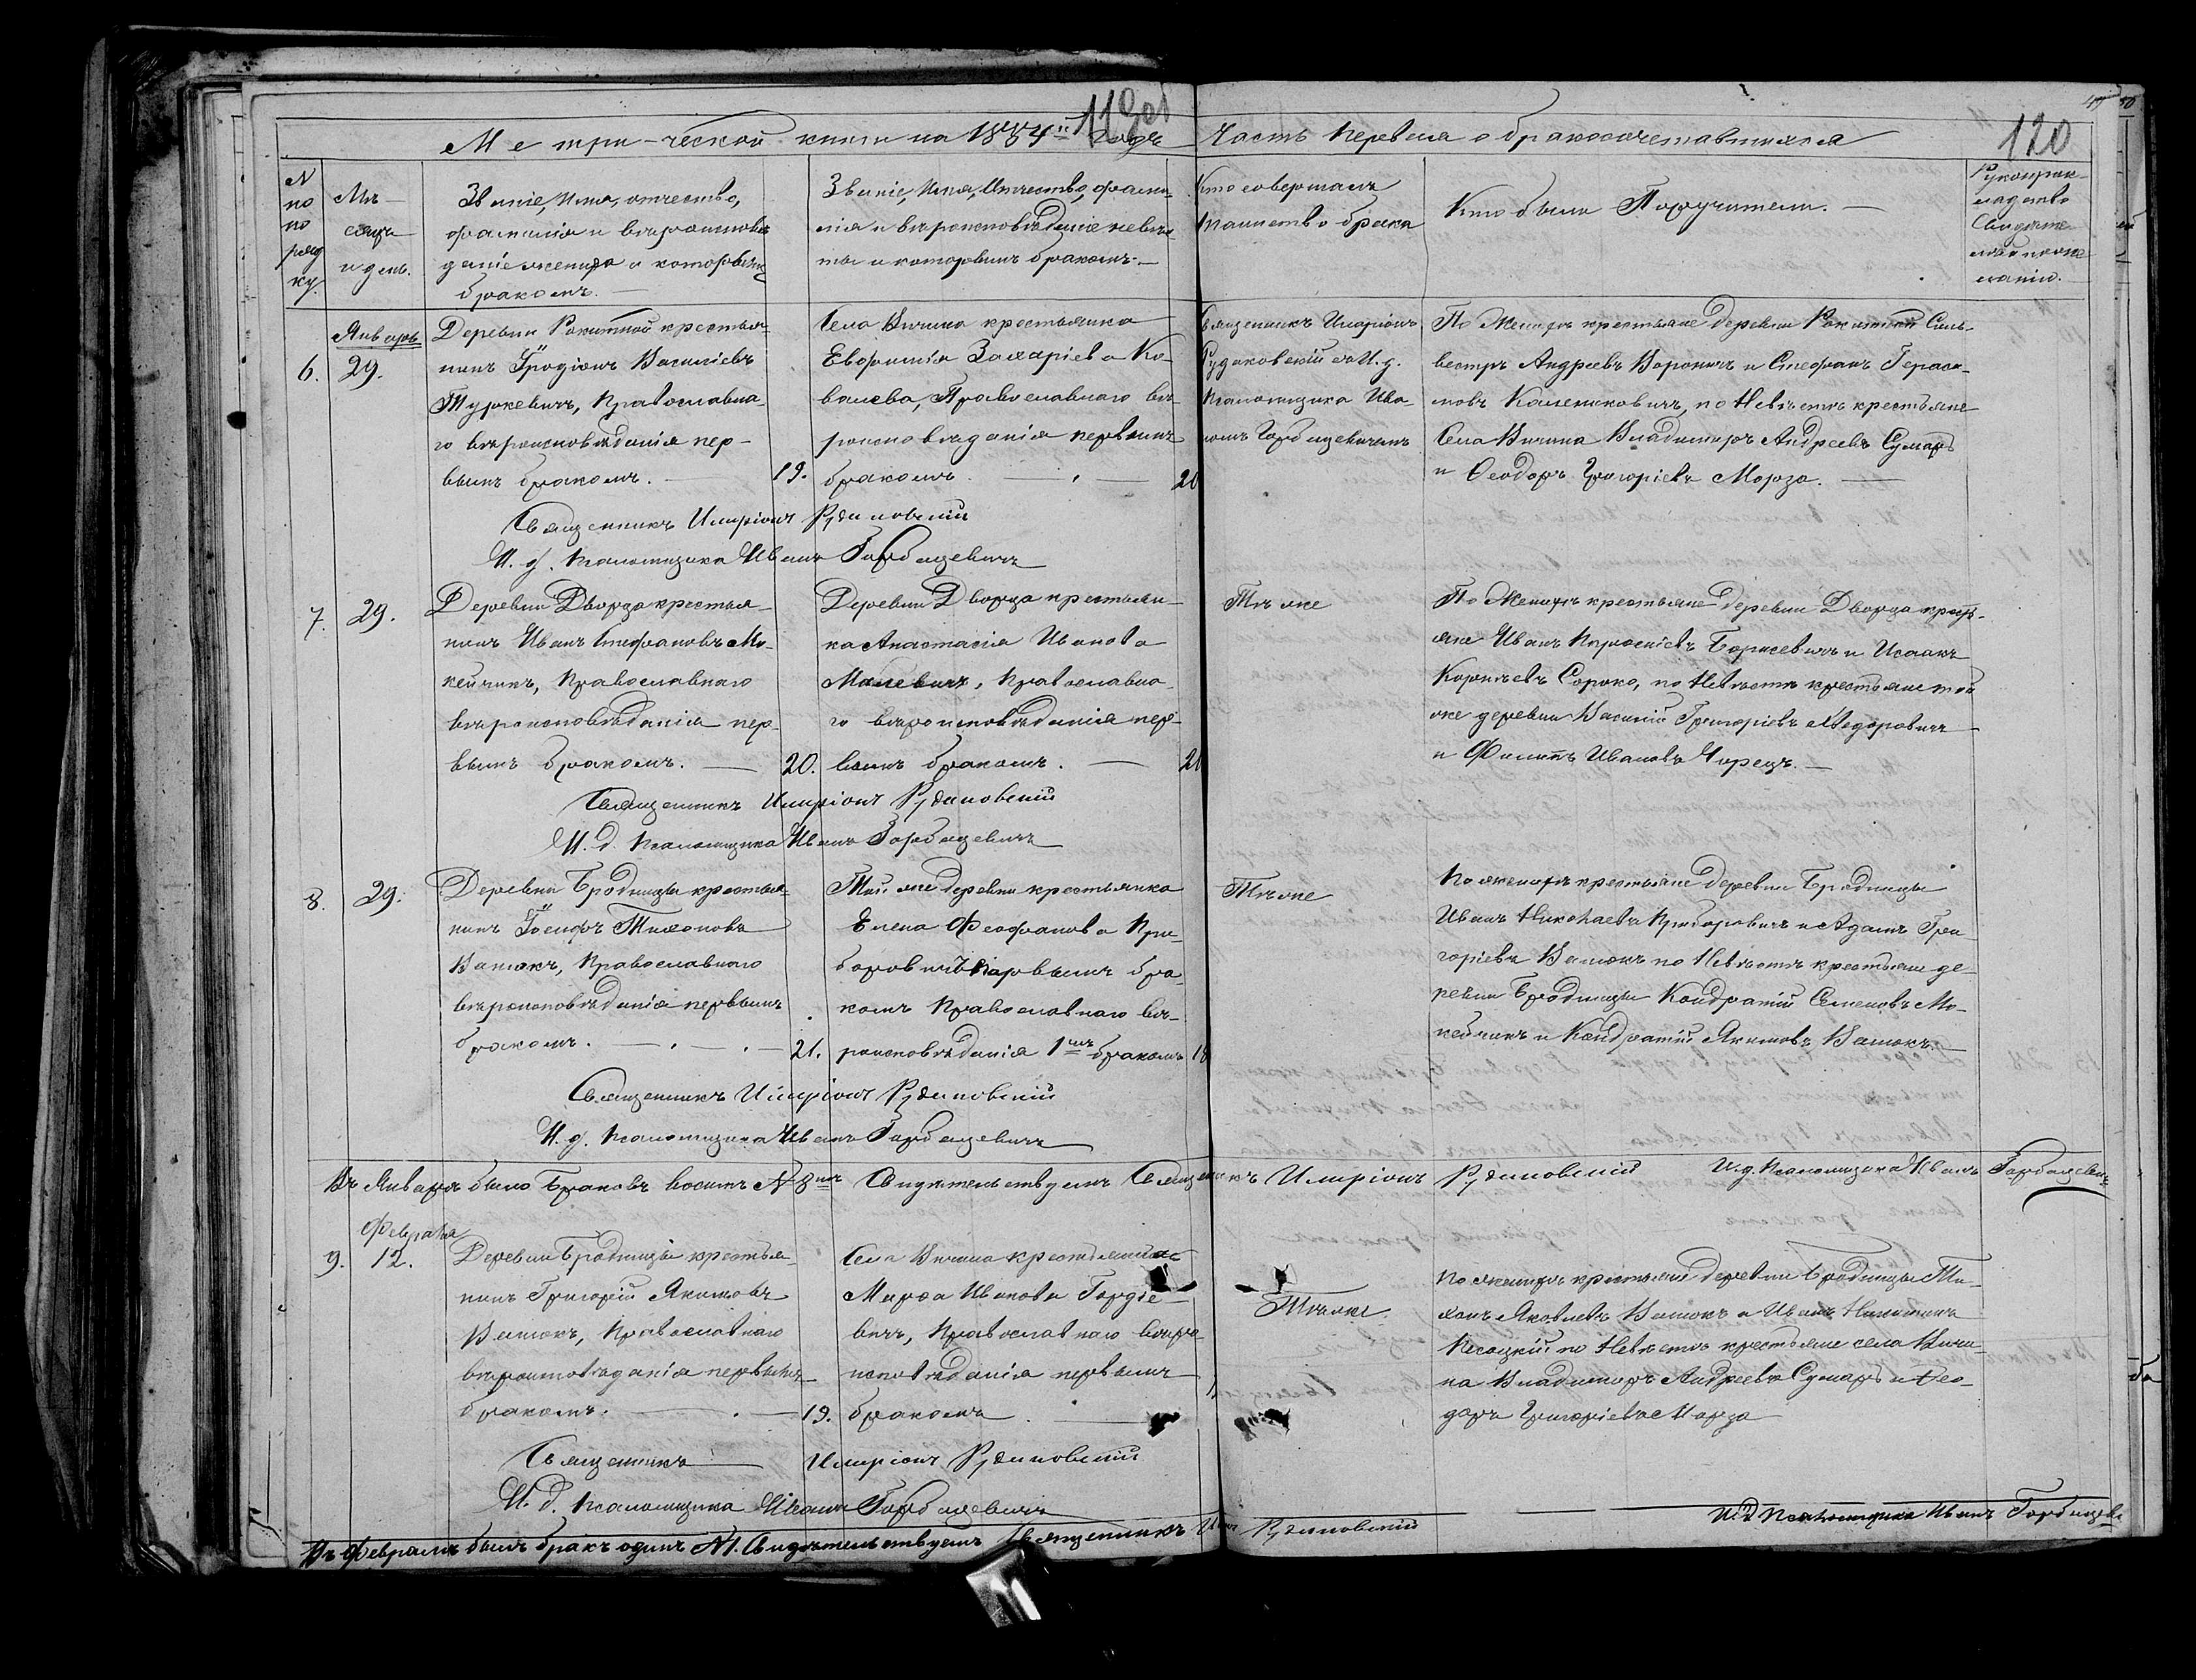 119об
Метрической книги на 1884й годъ
Часть первая о бракосочетавшихся
120
N по порядку.
Мѣсяцъ и день.
Званіе, имя, отчество,
фамилія и вѣроисповѣ
даніе жениха и которымъ
бракомъ.
Званіе, имя, отчество, фами-
лія и вѣроисповѣданіе невѣс-
ты и которымъ бракомъ.
Кто совершалъ
таинство брака
Кто были Поручители.
Рукоприк-
ладство
Свидѣте-
лей по же-
ланію.
Январь
6.
29.
Деревни Рокитной крестья-
нинъ Іродіонъ Василіевъ
Туркевичъ, Православна-
го вѣроисповѣданія пер-
вымъ бракомъ.
19.
Села Вичина крестьянка
Евфимія Захаріева Ко-
валева, Православнаго вѣ-
роисповѣданія первымъ
бракомъ.
20
Священникъ Иларіонъ
Рудаковскій съ И. д.
Псаломщика Ива-
номъ Горбацевичемъ
По Женихѣ крестьяне деревни Рокитной Силь-
вестръ Андреевъ Вороничъ и Стефанъ Гераси-
мовъ Калениковичъ, по Невѣстѣ крестьяне
Села Вичина Владимиръ Андреевъ Сумаръ
и Ѳеодоръ Григоріевъ Морза.
Священникъ Иларіонъ Рудаковскій
И. д. Псаломщика Иванъ Горбацевичъ
7.
29.
Деревни Дворца крестья-
нинъ Иванъ Стефановъ Мо-
кейчикъ, Православнаго
вѣроисповѣданія пер-
вымъ бракомъ.
20.
Деревни Дворца крестьян-
ка Анастасія Иванова
Малевичъ, Православна-
го вѣроисповѣданія пер-
вымъ бракомъ.
21
Тѣ же
По Женихѣ крестьяне деревни Дворца крест-
яне Иванъ Борисевичъ и Исаакъ
Корнѣевъ Сороко, по Невѣстѣ крестьяне той
же деревни Василій Григоріевъ Ѳедоровичъ
и Филипъ Ивановъ Чорецъ.
Священникъ Иларіонъ Рудаковскій
И. д. Псаломщика Иванъ Горбацевичъ
8.
29.
Деревни Бродницы крестья-
нинъ Іосифъ Тихоновъ
Валюкъ, Православнаго
вѣроисповѣданія первымъ
бракомъ.
21.
Той же деревни крестьянка
Елена Феофанова При-
боровичъ первымъ бра-
комъ Православнаго вѣ-
роисповѣданія 1мъ бракомъ
18
Тѣ же
По женихѣ крестьяне деревни Бродницы
Иванъ Николаевъ Приборовичъ и Адамъ Гри-
горіевъ Валюкъ по Невѣстѣ крестьяне де-
ревни Бродницы Кондратій Семеновъ Мо-
кейчикъ и Кондратій Якимовъ Валюкъ.
Священникъ Иларіонъ Рудаковскій
И. д. Псаломщика Иванъ Горбацевичъ
Въ Январѣ было Браковъ восемь N 8мъ Свидѣтельствуемъ Священникъ Иларіонъ Рудаковскій И. д. Псаломщика Иванъ Горбацевичъ
Февраля
9.
12.
Деревни Бродницы крестья-
нинъ Григорій Якимовъ
Валюкъ, Православнаго
вѣроисповѣданія первымъ
бракомъ.
19.
Села Вичина крестьянка
Марѳа Иванова Гордіе-
вичъ, Православнаго вѣро-
исповѣданія первымъ
бракомъ.
Тѣ же.
По женихѣ крестьяне деревни Бродницы Ти-
хонъ Яковлевъ Валюкъ и Иванъ Никитинъ
Песоцкій по Невѣстѣ крестьяне села Вичи-
на Владимиръ Андреевъ Сумаръ и Ѳео-
доръ Григоріевъ Морза
Священникъ Иларіонъ Рудаковскій
И. д. Псаломщика Иванъ Горбацевичъ
Въ Февралѣ былъ бракъ одинъ N1. Свидѣтельствуемъ Священникъ Рудаковскій И. д. Псаломщика Иванъ Горбацеви